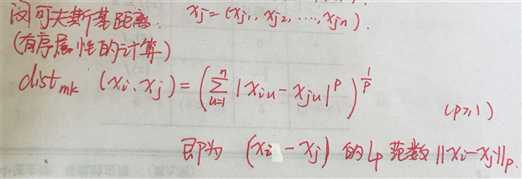 闵可夫斯基距离. xj = (xj1, xj2, ..., xjn).
(有序属性的计算)
dist mk (xi, xj) = (∑_{u=1}^{n} |xiu - xju|^p)^{1/p}
(p≥1)
即为 (xi - xj) 的 Lp 范数 ||xi - xj||p.